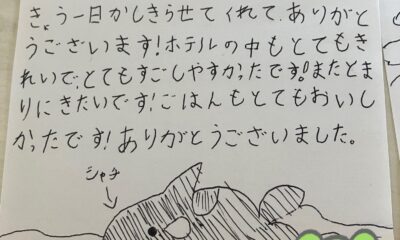 きょう一日かしきらせてくれて、ありがと
うございます!ホテルの中もとてもき
れいで、とてもすごしやすかったです。またとま
りにきたいです!ごはんもとてもおいし
かったです!ありがとうございました。
シャチ